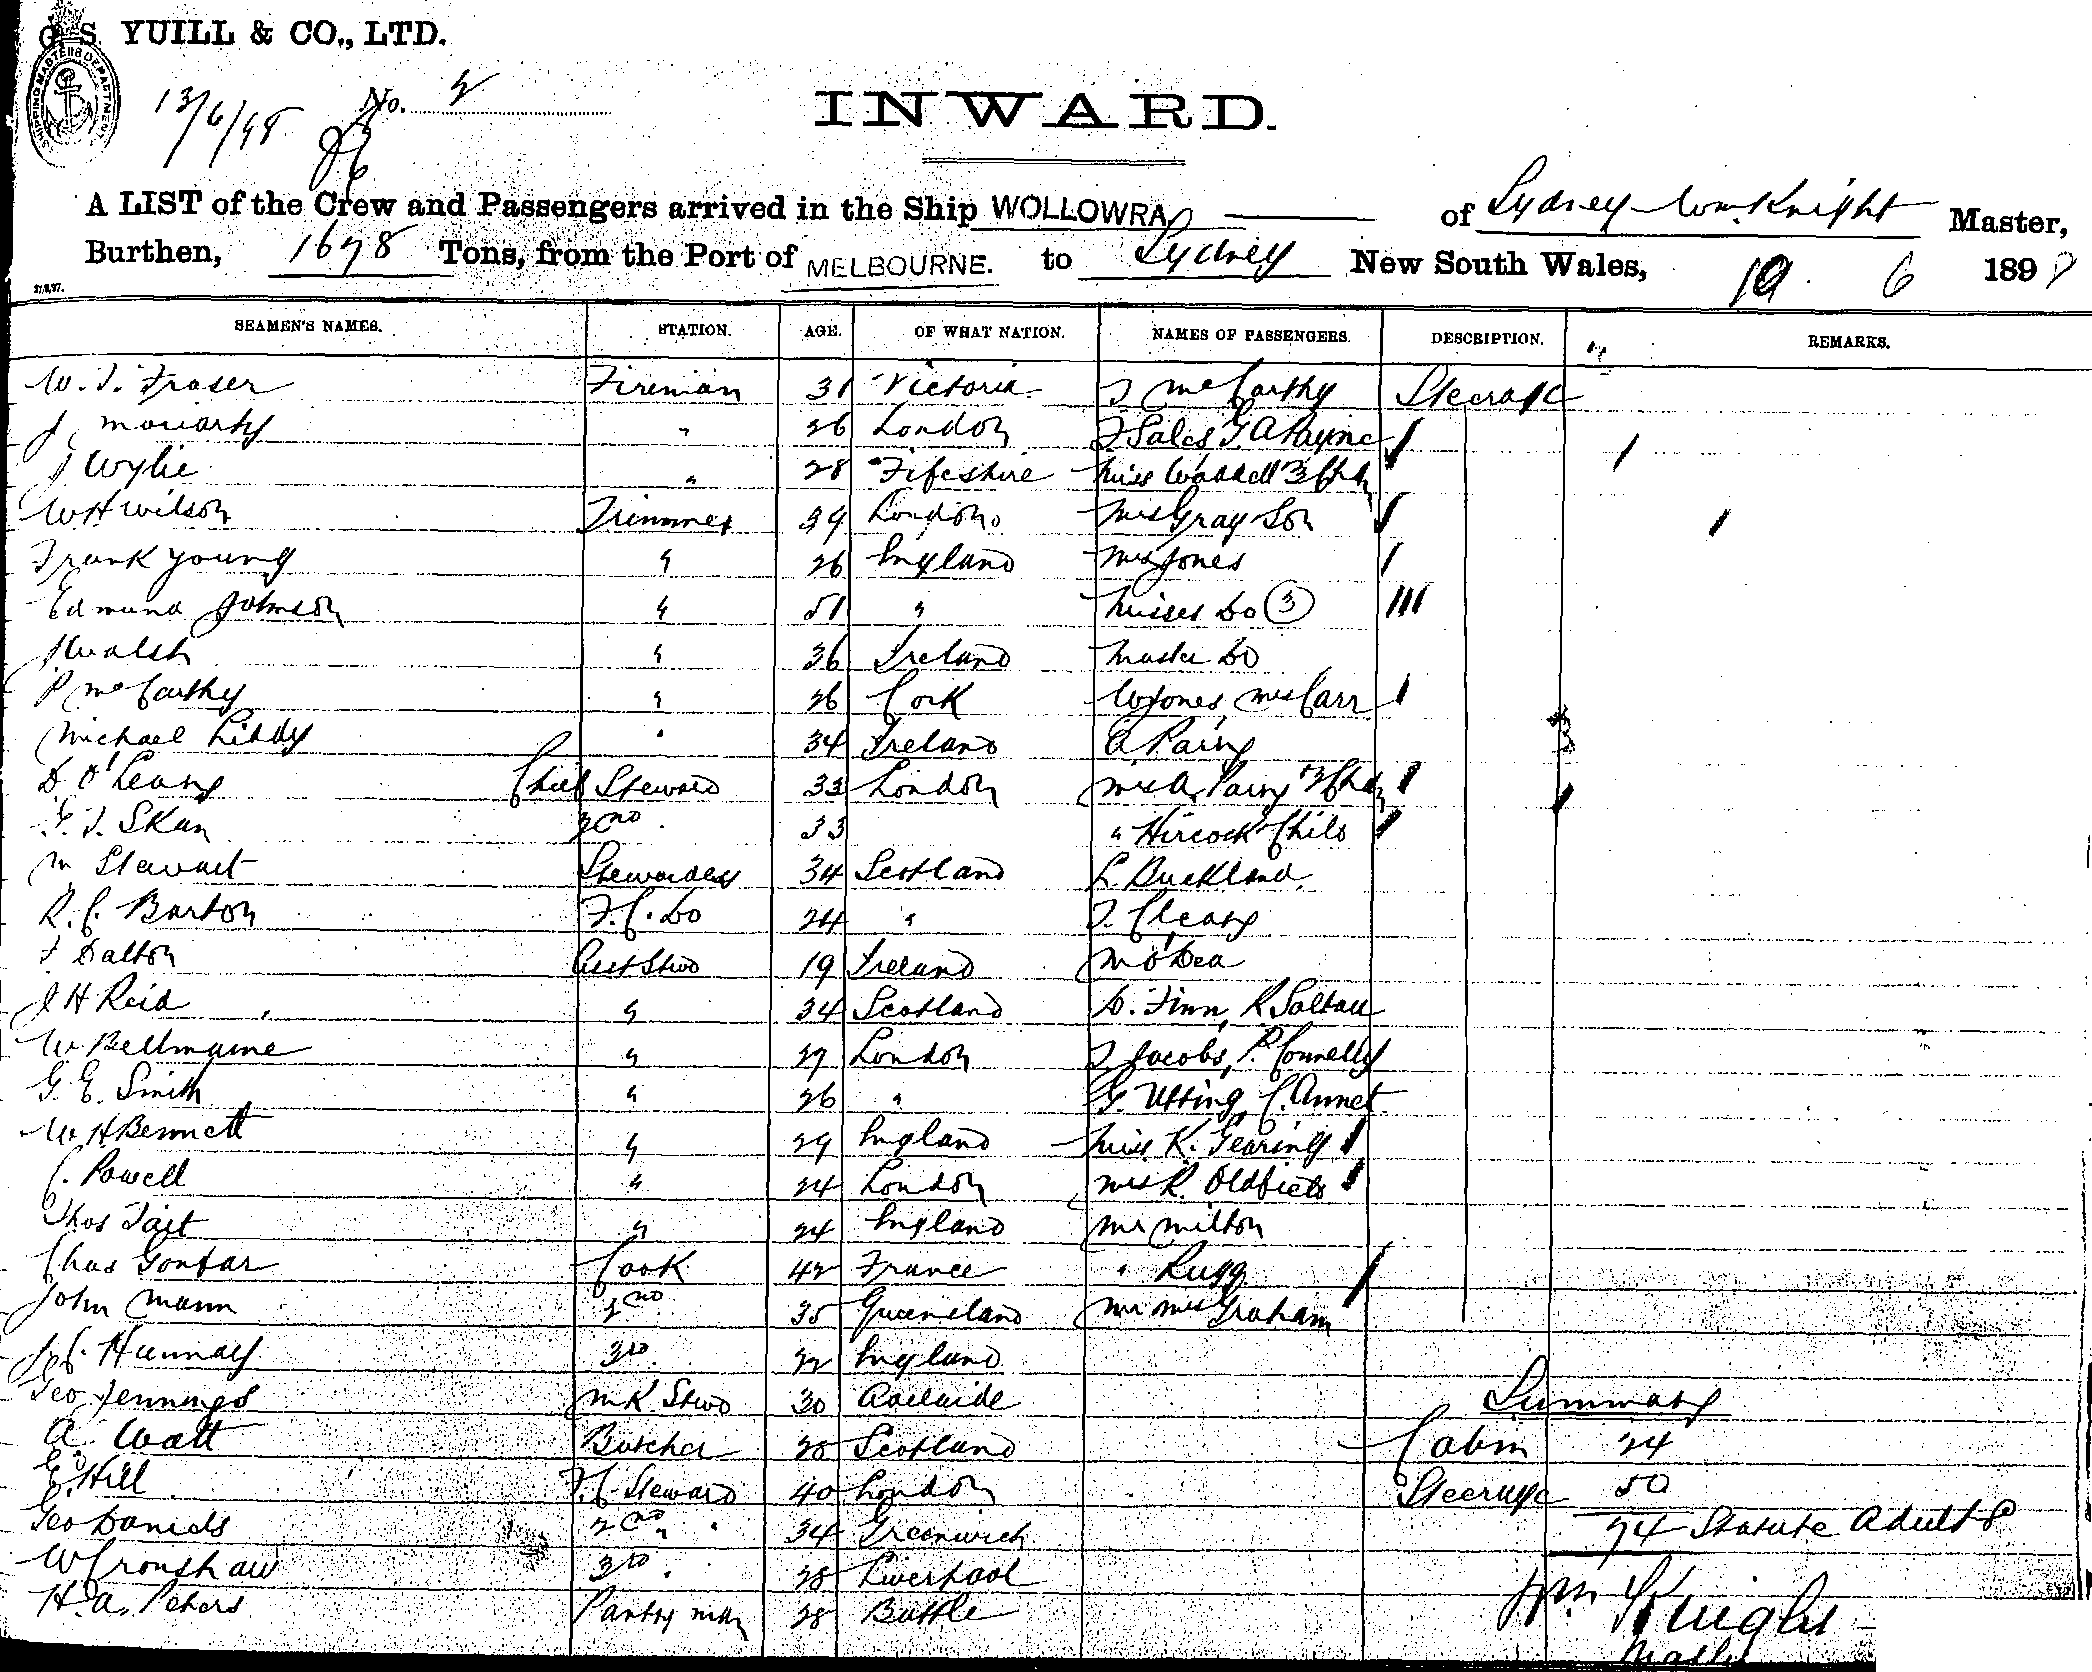 G. S. YUILL & CO., LTD.
SHIPPING MASTERS DEPARTMENT
13/6/98 No. 2
INWARD.
A LIST of the Crew and Passengers arrived in the Ship WOLLOWRA of Sydney Wm. Knight Master,
Burthen, 1698 Tons, from the Port of MELBOURNE. to Sydney New South Wales, 6 1898
SEAMEN'S NAMES. STATION. AGE. OF WHAT NATION. NAMES OF PASSENGERS. DESCRIPTION. REMARKS.
W. J. Fraser Fireman 31 Victoria McCarthy Steerage
J Moriarty " 26 London F Sales G. A Payne
J Wylie " 28 Fifeshire Miss Waddell 3 Chdn
W H Wilson Trimmer 39 London Mrs Gray Son
Frank Young " 26 England Mrs Jones
Edmund Johnson " 51 " Misses Do (3)
J Walsh " 36 Ireland Master Do
P McCarthy " 26 Cork W Jones, Mrs Carr
Michael Liddy " 34 Ireland A Pairy
D O'Leary Chief Steward 33 London Mrs A. Pairy 3 Chdn
F. J. Skan 2nd 33 " Hircock Child
M Stewart Stewardess 34 Scotland L. Buckland
R. C. Barton F. C. Do 24 " J. Cleary
F Dalton Asst Stwd 19 Ireland M O'Dea
J H Reid " 34 Scotland D. Finn, R Saltau
W Bellmaine " 27 London J Jacobs, P. Connelly
G. E. Smith " 26 " G. Utting, C. Annet
W H Bennett " 29 England Miss K. Gearing
C. Powell " 24 London Mrs R. Oldfield
Thos Tait " 24 England Mr Milton
Chas Gontar Cook 42 France " Rugg
John Mann 2nd 35 Queensland Mr Mrs Graham
Hannay 3rd 22 England
Geo Jennings M R Stwd 30 Adelaide Summary
A Watt Butcher 28 Scotland Cabin 24
E. Hill F. C. Steward 40 London Steerage 50
Geo Daniels 2nd " 34 Greenwich 74 Statute Adults
W Cronshaw 3rd 28 Liverpool
H. A. Peters Pantry man 28 Battle Wm Knight
Master